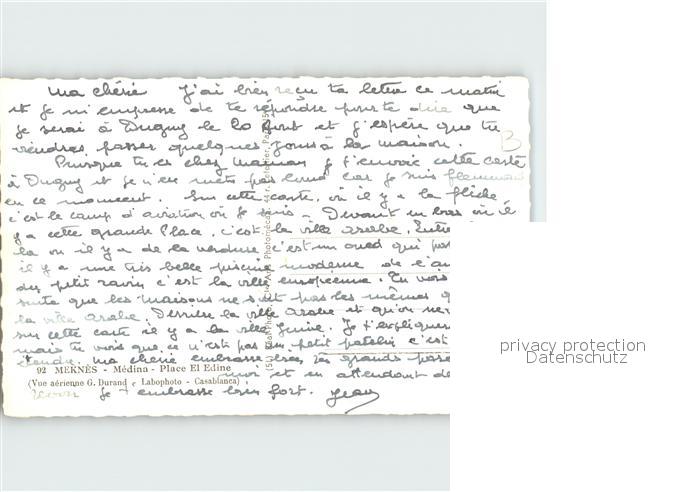 ma chérie J'ai bien reçu ta lettre ce matin
et je m'empresse de te répondre pour te dire que
je serai à Dugny le 20 Août et j'espère que tu
viendras passer quelques jours à la maison.
Puisque tu es chez maman je t'envoie cette carte
à Dugny et je n'en mets pas long car je suis flemmard
en ce moment. Sur cette carte, où il y a la flèche
c'est le camp d'aviation où je suis. Devant en bas où il
y a cette grande Place, c'est la ville arabe. Entre
là où il y a de la verdure c'est un oued qui
il y a une très belle piscine moderne de
du petit ravin c'est la ville européenne. Tu vois
suite que les maisons ne sont pas les mêmes
la ville arabe. Derrière la ville arabe et qu'on ne
sur cette carte il y a la ville juive. Je t'expliquerai
mais tu vois que ce n'est pas un petit patelin c'est
étendu. ma chérie embrasse les grands
92 MEKNÈS - Médina - Place El Edine
moi et en attendant de
(Vue aérienne G. Durand - Labophoto - Casablanca)
revoir je t'embrasse bien fort. Jean
privacy protection
Datenschutz